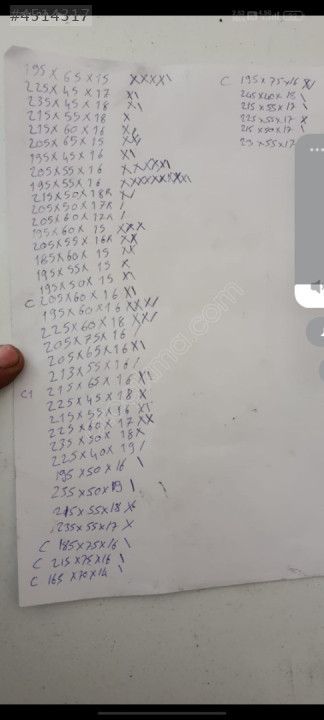 #4514317
195 x 65 x 15 XXXX\
225 x 45 x 17 X\
235 x 45 x 18 X\
215 x 55 x 18 X
215 x 60 x 16 X
205 x 65 x 15 XX
195 x 45 x 16 X\
205 x 55 x 16
195 x 55 x 16
215 x 50 x 18R
205 x 50 x 17R /
205 x 60 x 17R /
195 x 60 x 15 XXX
205 x 55 x 16R XX
185 x 60 x 15 XX
195 x 55 x 15 X
195 x 50 x 15
C 205 x 60 x 16 X\
195 x 60 x 16
225 x 60 x 18
205 x 75 x 16 /
205 x 65 x 16 X\
213 x 55 x 16 /
C1 215 x 65 x 16 X\
225 x 45 x 18 X
215 x 55 x 16 X\
225 x 60 x 17 XX
235 x 50 x 18 X
225 x 40 x 19 /
195 x 50 x 16 \
255 x 50 x 19 \
215 x 55 x 18 X
235 x 55 x 17 X
C 185 x 75 x 16 \
C 215 x 75 x 16 \
C 165 x 70 x 14 \
C 195 x 75 x 16
215 x 55 x 17 \
225 x 55 x 17 X